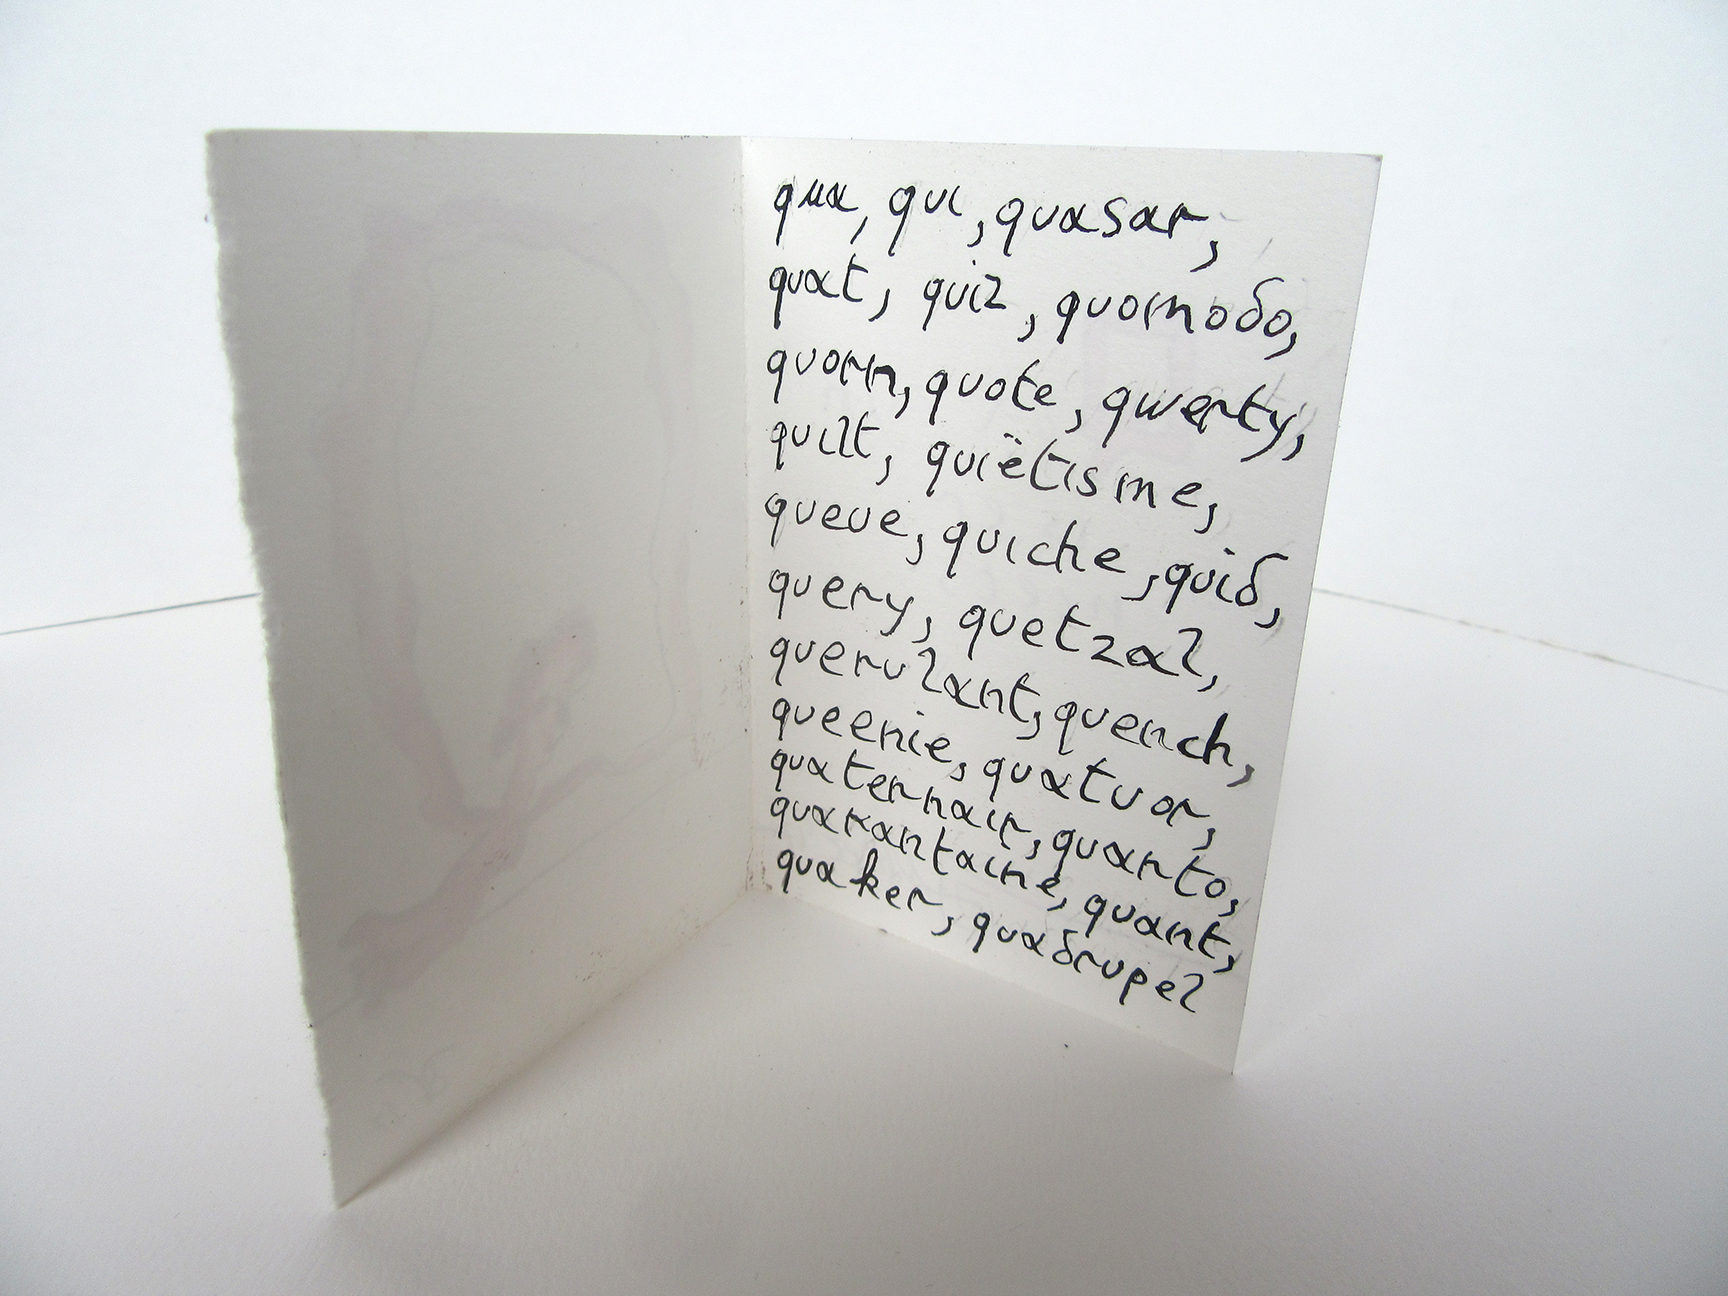 qua, qui, quasar,
quat, quiz, quomodo,
quorn, quote, qwerty,
quilt, quiëtisme,
queue, quiche, quid,
query, quetzal,
querulant, quench,
queenie, quatuor,
quaternair, quanto,
quarantaine, quant,
quaker, quadrupel